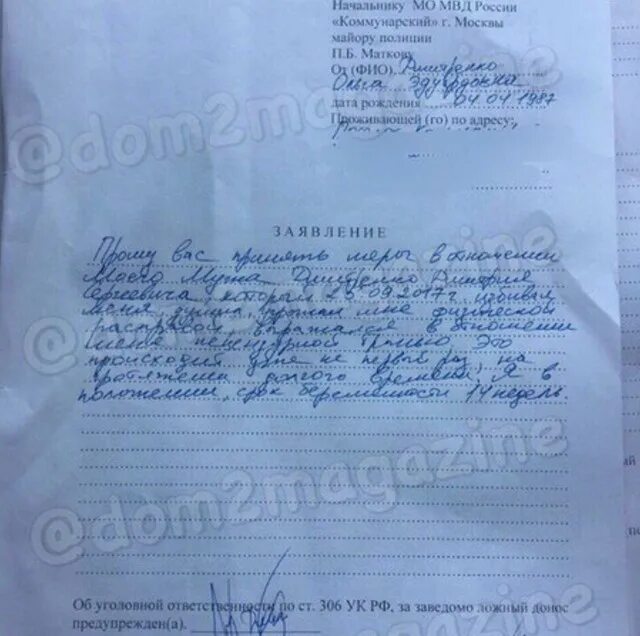 Начальнику МО МВД России
«Коммунарский» г. Москвы
майору полиции
П.Б. Маткову
От (ФИО) Дмитренко
Ольга Эдуардовна
дата рождения 04 04 1987
Проживающей (го) по адресу:
@dom2magazine
ЗАЯВЛЕНИЕ
Прошу вас принять меры в отношении
Моего Мужа Дмитренко Дмитрия
Сергеевича, который 25.09.2017г избивал
меня, душил, мне физической
расправой, выражался в отношении
меня нецензурной бранью. Это
происходит уже не первый раз, на
протяжении долгого времени, Я в
положении, срок беременности 14 недель
@dom2magazine
Об уголовной ответственности по ст. 306 УК РФ, за заведомо ложный донос
предупрежден(а).